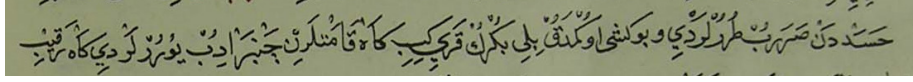 حَسَدْدَنْ صَرَرُبْ طُرُرْلَرْدِي وبوكشى اوكُمدَقُ بِلِى بكُرُكْ قَرَىِ كِيبِ كاهْ قَامْتْلَرِنْ چَنْبَرْ ادِبْ يُورُرْلَرْدِي كاه رَقِيبْ